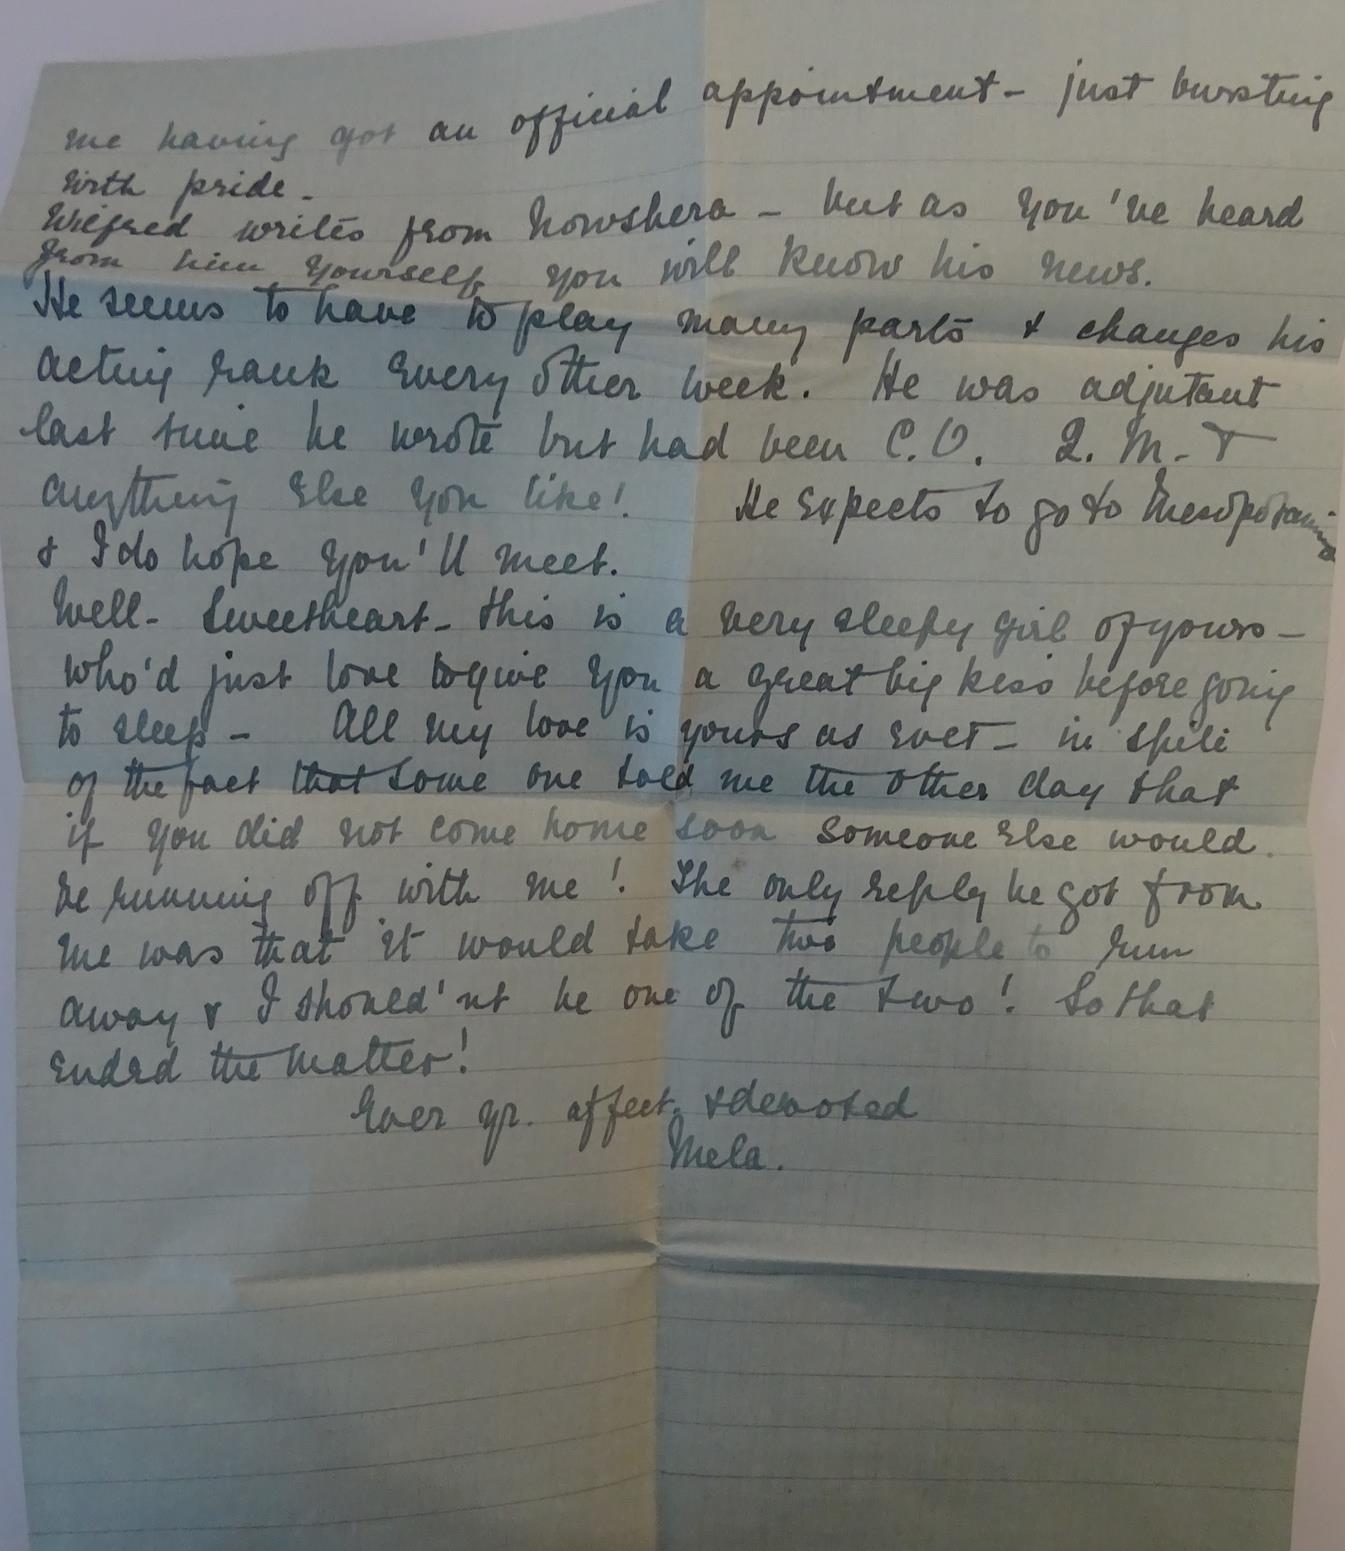 me having got an official appointment - just bursting
with pride -
Wilfred writes from Nowshera - but as you've heard
from him yourself, you will know his news.
He seems to have to play many parts & changes his
acting rank every other week. He was adjutant
last time he wrote but had been C.O. Q.M. &
anything else you like! He expects to go to Mesopotamia
& I do hope you'll meet.
Well - Sweetheart - this is a very sleepy girl of yours -
who'd just love to give you a great big kiss before going
to sleep - All my love is yours as ever - in spite
of the fact that some one told me the other day that
if you did not come home soon someone else would
be running off with me! The only reply he got from
me was that it would take two people to run
away & I should'nt be one of the two! So that
ended the matter!
Ever yr. affect. & devoted
Mela.